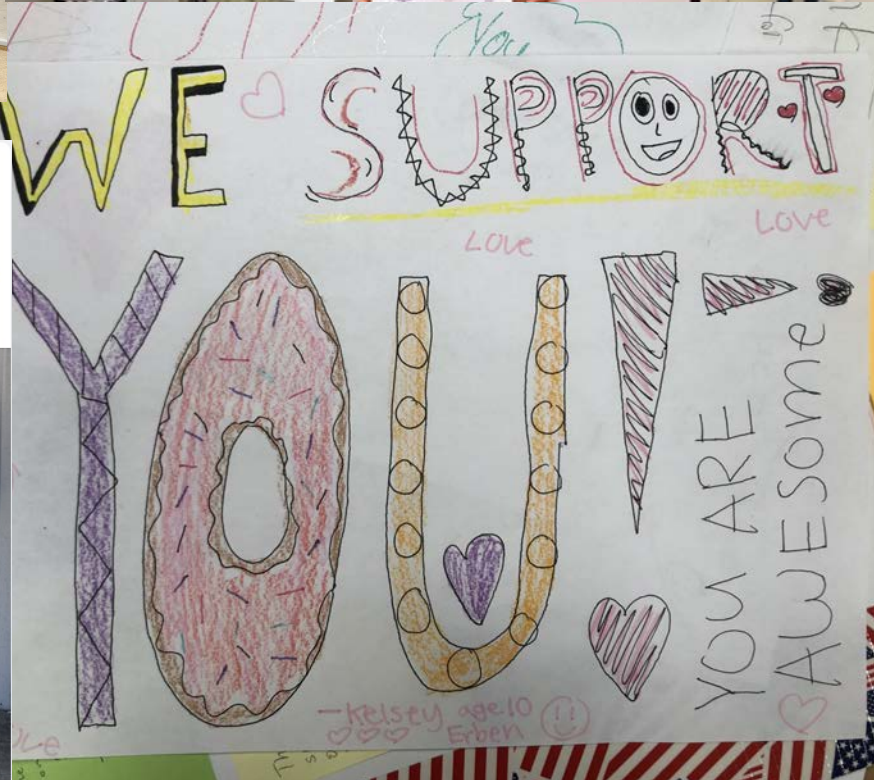 You
WE SUPPORT
LOVE
LOVE
YOU!
YOU ARE
AWESOME!
-Kelsey age 10
Erben